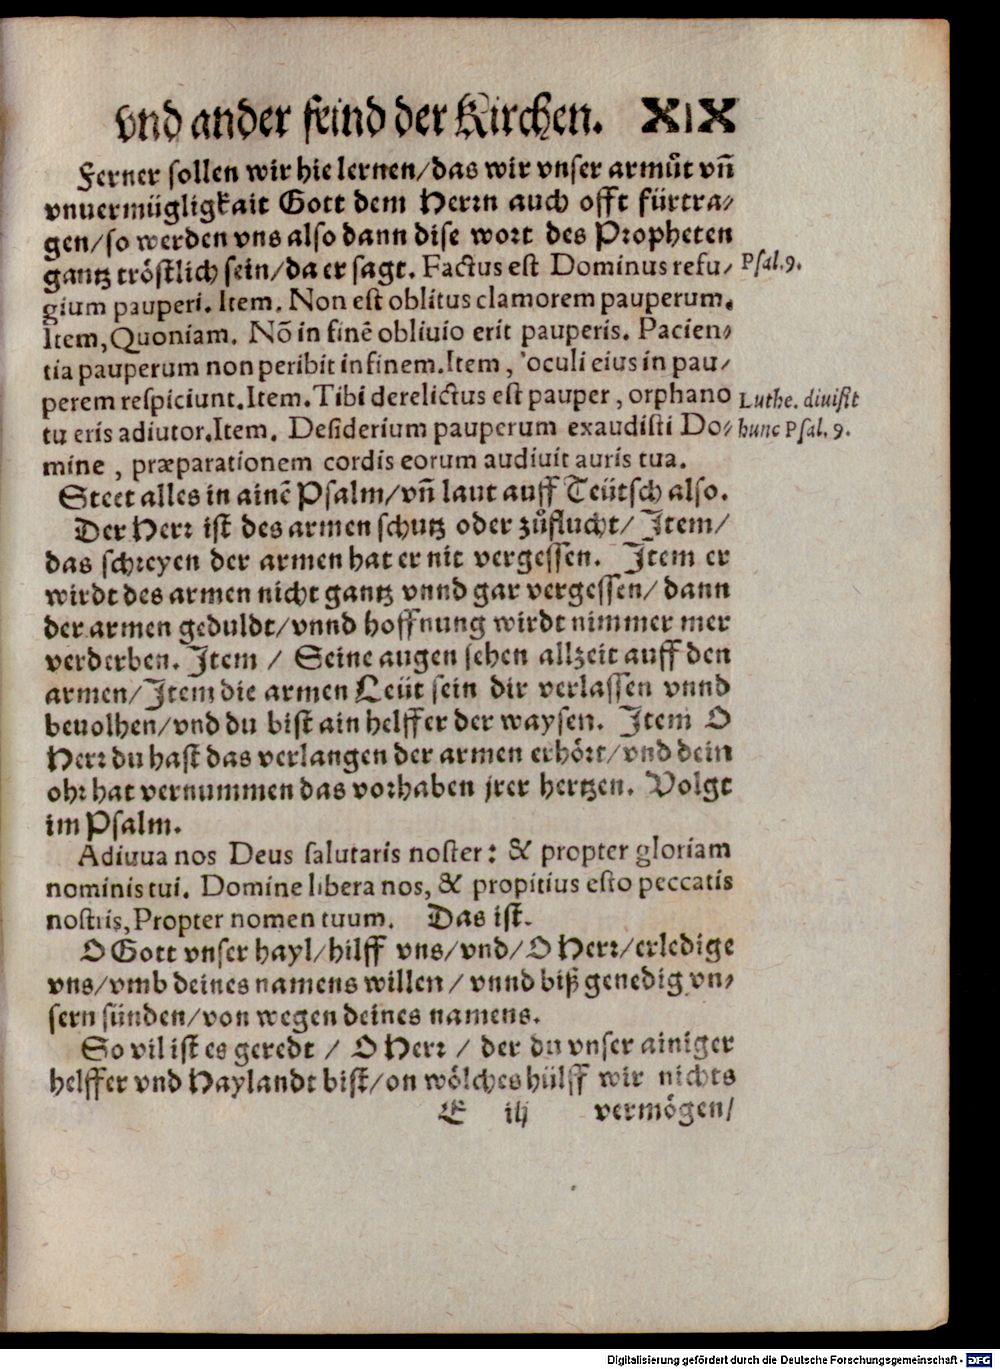 vnd ander feind der Kirchen. XIX
Ferner sollen wir hie lernen/das wir vnser armůt vñ
vnuermügligkait Gott dem Herrn auch offt fürtra-
gen/so werden vns also dann dise wort des Propheten
gantz tröstlich sein/da er sagt. Factus est Dominus refu- Psal.9.
gium pauperi. Item. Non est oblitus clamorem pauperum.
Item, Quoniam. Nō in finē obliuio erit pauperis. Pacien-
tia pauperum non peribit in finem.Item, oculi eius in pau-
perem respiciunt.Item.Tibi derelictus est pauper, orphano Luthe. diuisit
tu eris adiutor.Item. Desiderium pauperum exaudisti Do- hunc Psal. 9.
mine, præparationem cordis eorum audiuit auris tua.
Steet alles in ainē Psalm/vñ laut auff Teütsch also.
Der Herr ist des armen schutz oder zůflucht/ Item/
das schreyen der armen hat er nit vergessen. Item er
wirdt des armen nicht gantz vnnd gar vergessen/ dann
der armen geduldt/vnnd hoffnung wirdt nimmer mer
verderben. Item / Seine augen sehen allzeit auff den
armen/Item die armen Leüt sein dir verlassen vnnd
beuolhen/vnd du bist ain helffer der waysen. Item O
Herr du hast das verlangen der armen erhört/vnd dein
ohr hat vernummen das vorhaben jrer hertzen. Volgt
im Psalm.
Adiuua nos Deus salutaris noster: & propter gloriam
nominis tui. Domine libera nos, & propitius esto peccatis
nostris, Propter nomen tuum. Das ist.
O Gott vnser hayl/hilff vns/vnd/O Herr/erledige
vns/vmb deines namens willen/ vnnd biß genedig vn-
sern sünden/von wegen deines namens.
So vil ist es geredt / O Herr / der du vnser ainiger
helffer vnd Haylandt bist/on wölches hülff wir nichts
E iij vermögen/
Digitalisierung gefördert durch die Deutsche Forschungsgemeinschaft - DFG